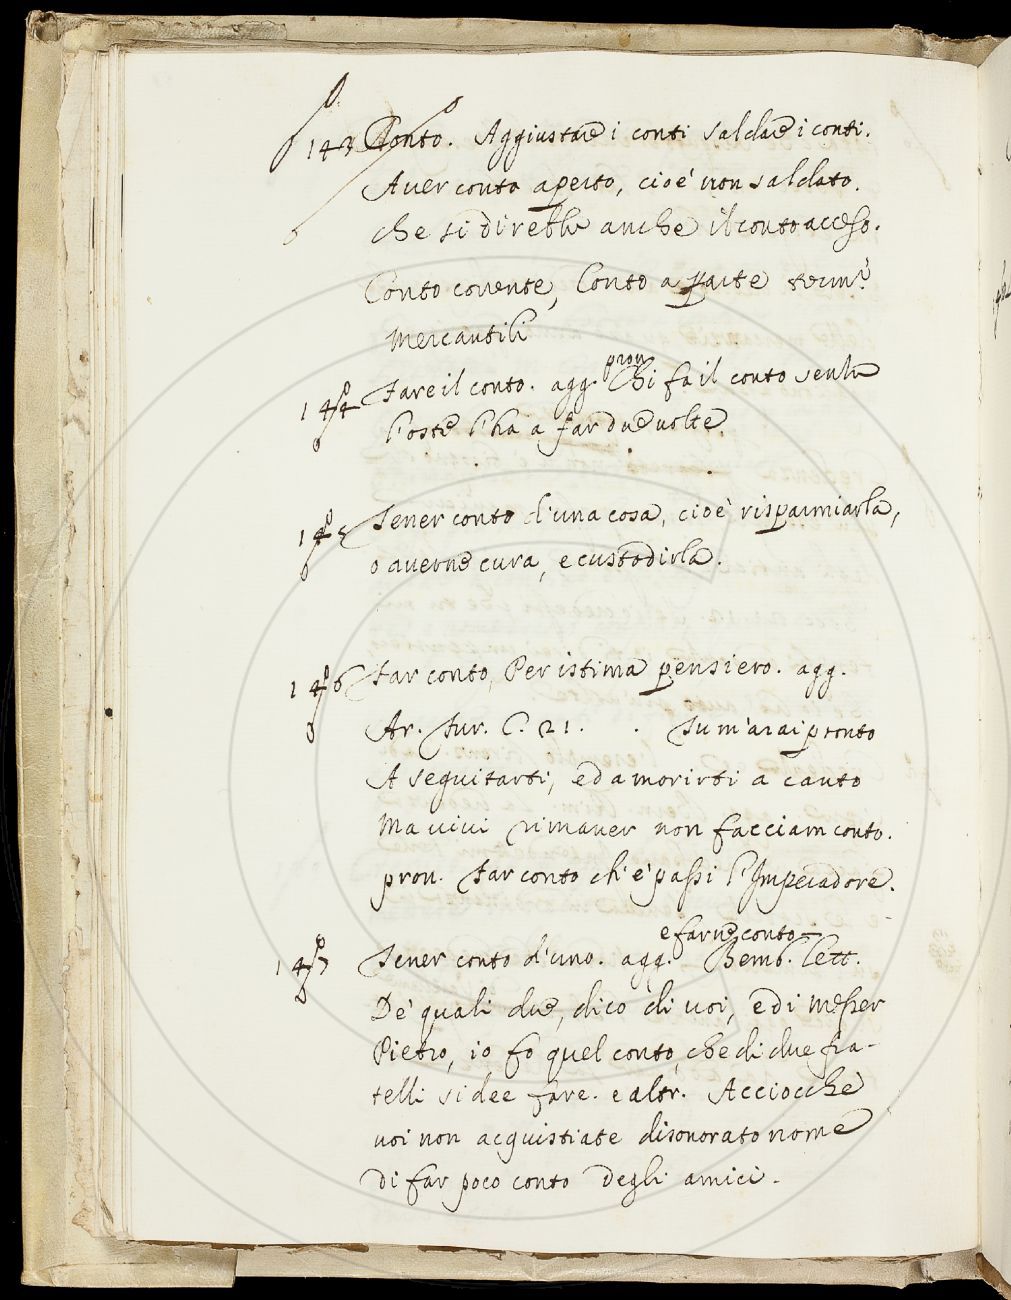 143 Conto. Aggiustare i conti saldare i conti.
Aver conto aperto, cioè non saldato.
che si direbbe anche il conto acceso.
Conto corrente, Conto a parte termi
Mercantili
prov.
144 Fare il conto. agg. Chi fa il conto senza
l'oste l'ha a far due volte.
145 Tener conto d'una cosa, cioè risparmiarla,
o averne cura, e custodirla.
146 Far conto, Per istima pensiero. agg.
Ar. Fur. C. 21. Tu m'arai pronto
A seguitarti, ed a morirti a canto
Ma vivi rimaner non facciam conto.
prov. Far conto ch'e' passi l'Imperadore.
e farne conto
147 Tener conto d'uno. agg. Bemb. lett.
De' quali due, dico di voi, e di Messer
Pietro, io fo quel conto, che di due fra-
telli si dee fare. e altr. Acciocchè
voi non acquistiate disonorato nome
di far poco conto degli amici.